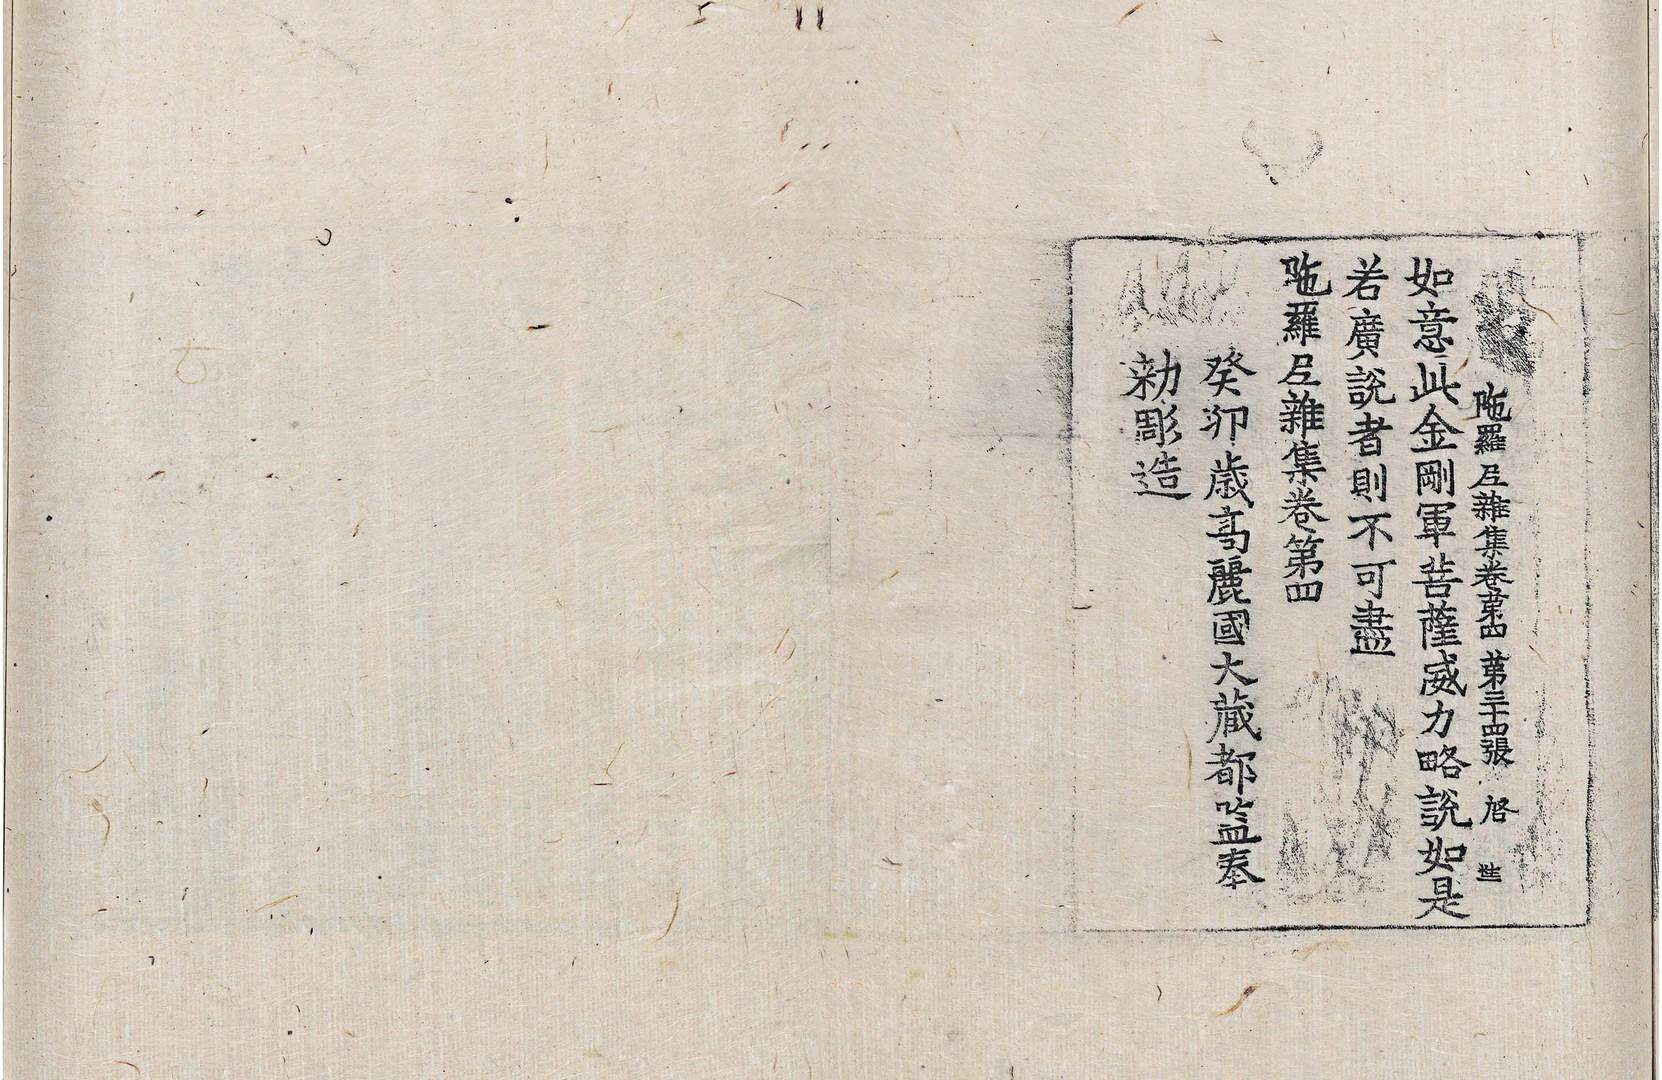 陁羅尼雜集卷第四 第三十四張 啓
如意此金剛軍菩薩威力略說如是
若廣說者則不可盡
陁羅尼雜集卷第四
癸卯歲高麗國大藏都監奉
勑彫造